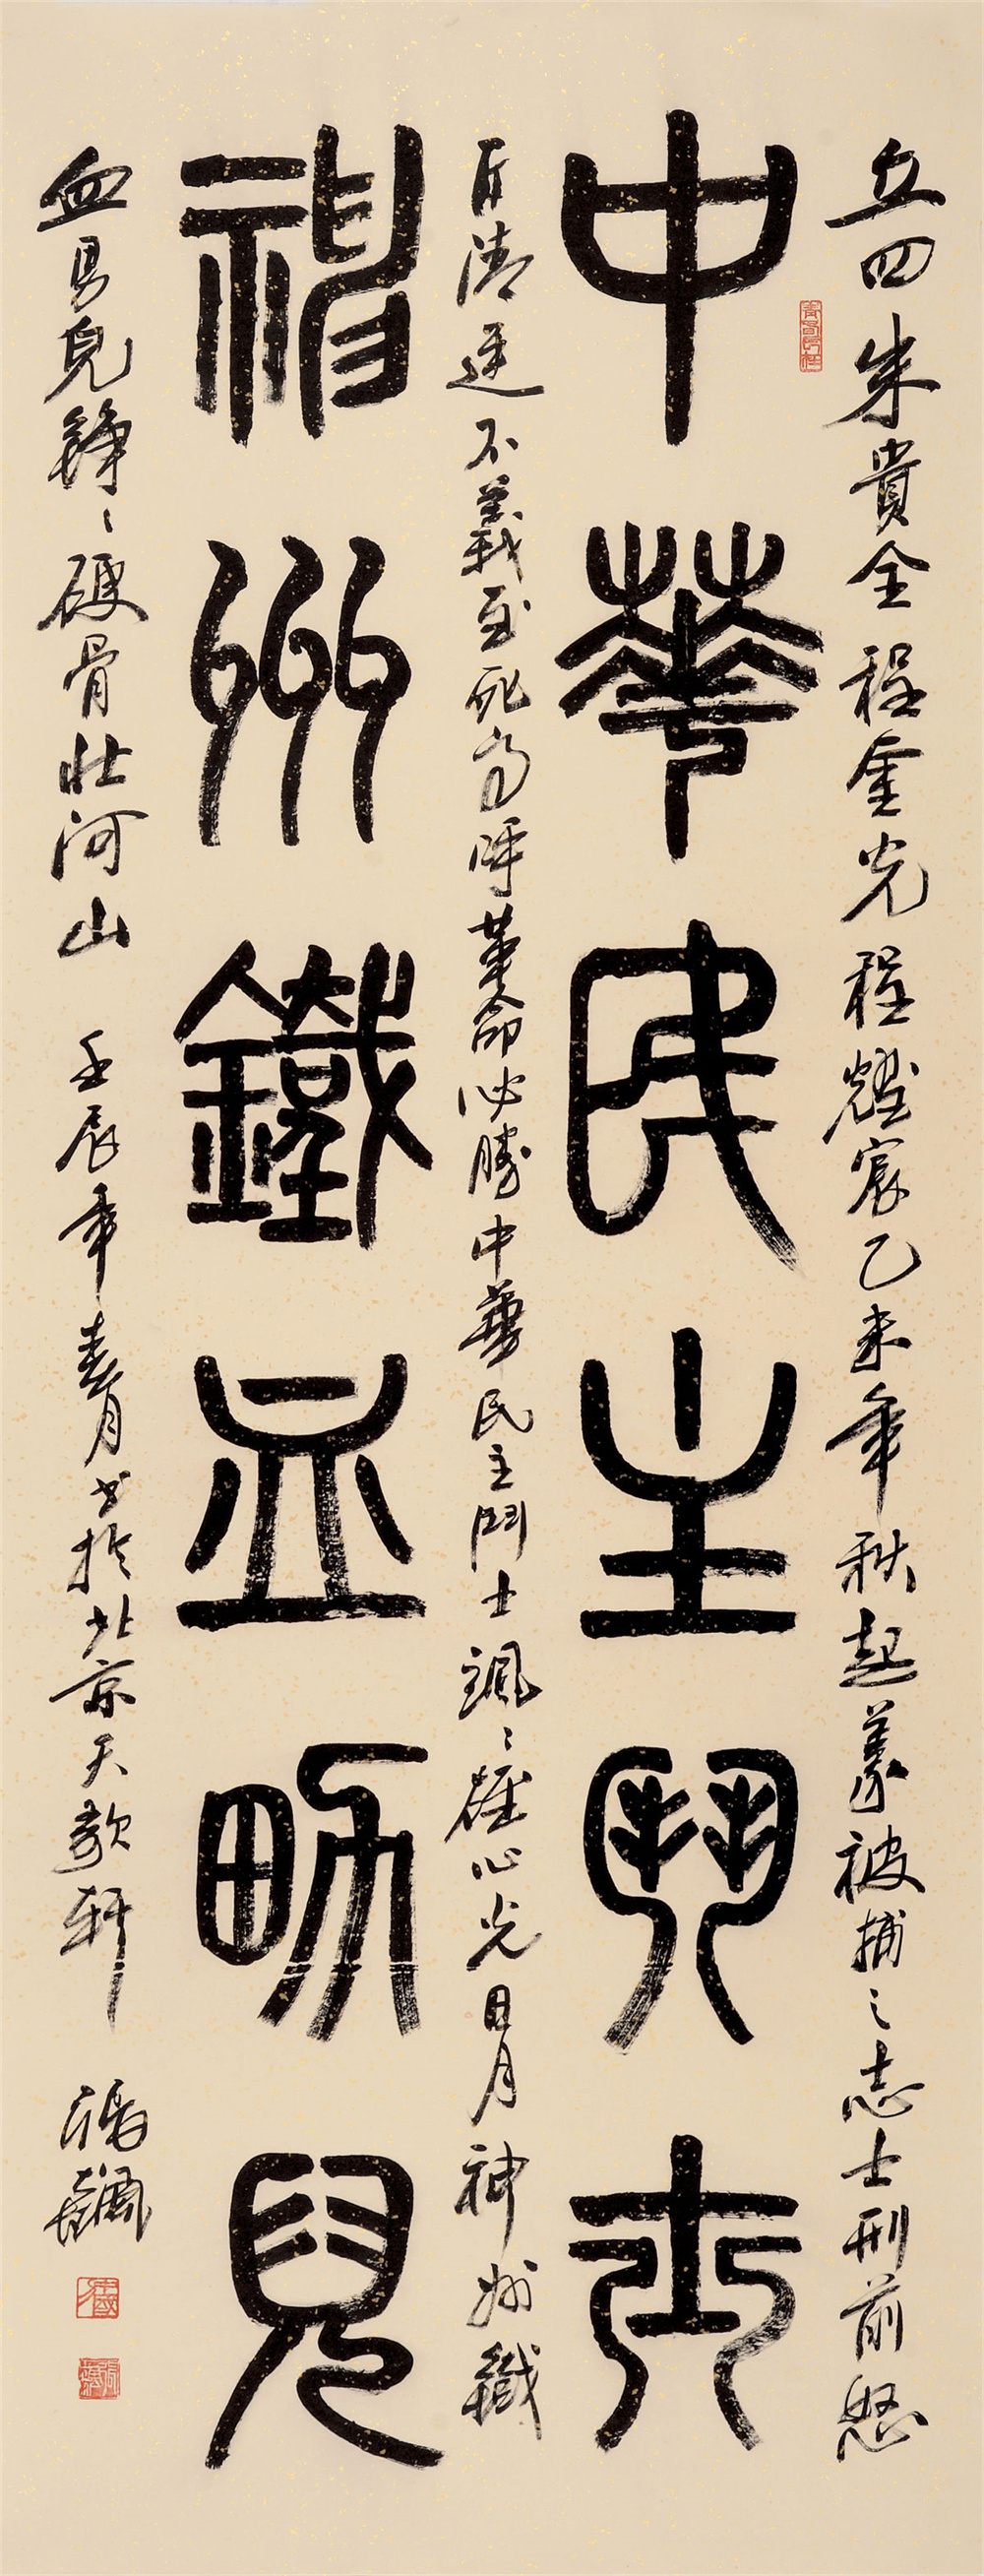 丘四朱貴全程奎光程耀宸乙未年秋起義被捕之志士刑前怒
中華民主鬥士
斥清廷不義至死高呼革命必勝中華民主鬥士颯〻雄心光日月神州鐵
神州鐵血男兒
血男兒錚〻硬骨壯河山 壬辰年春月書於北京天歌軒